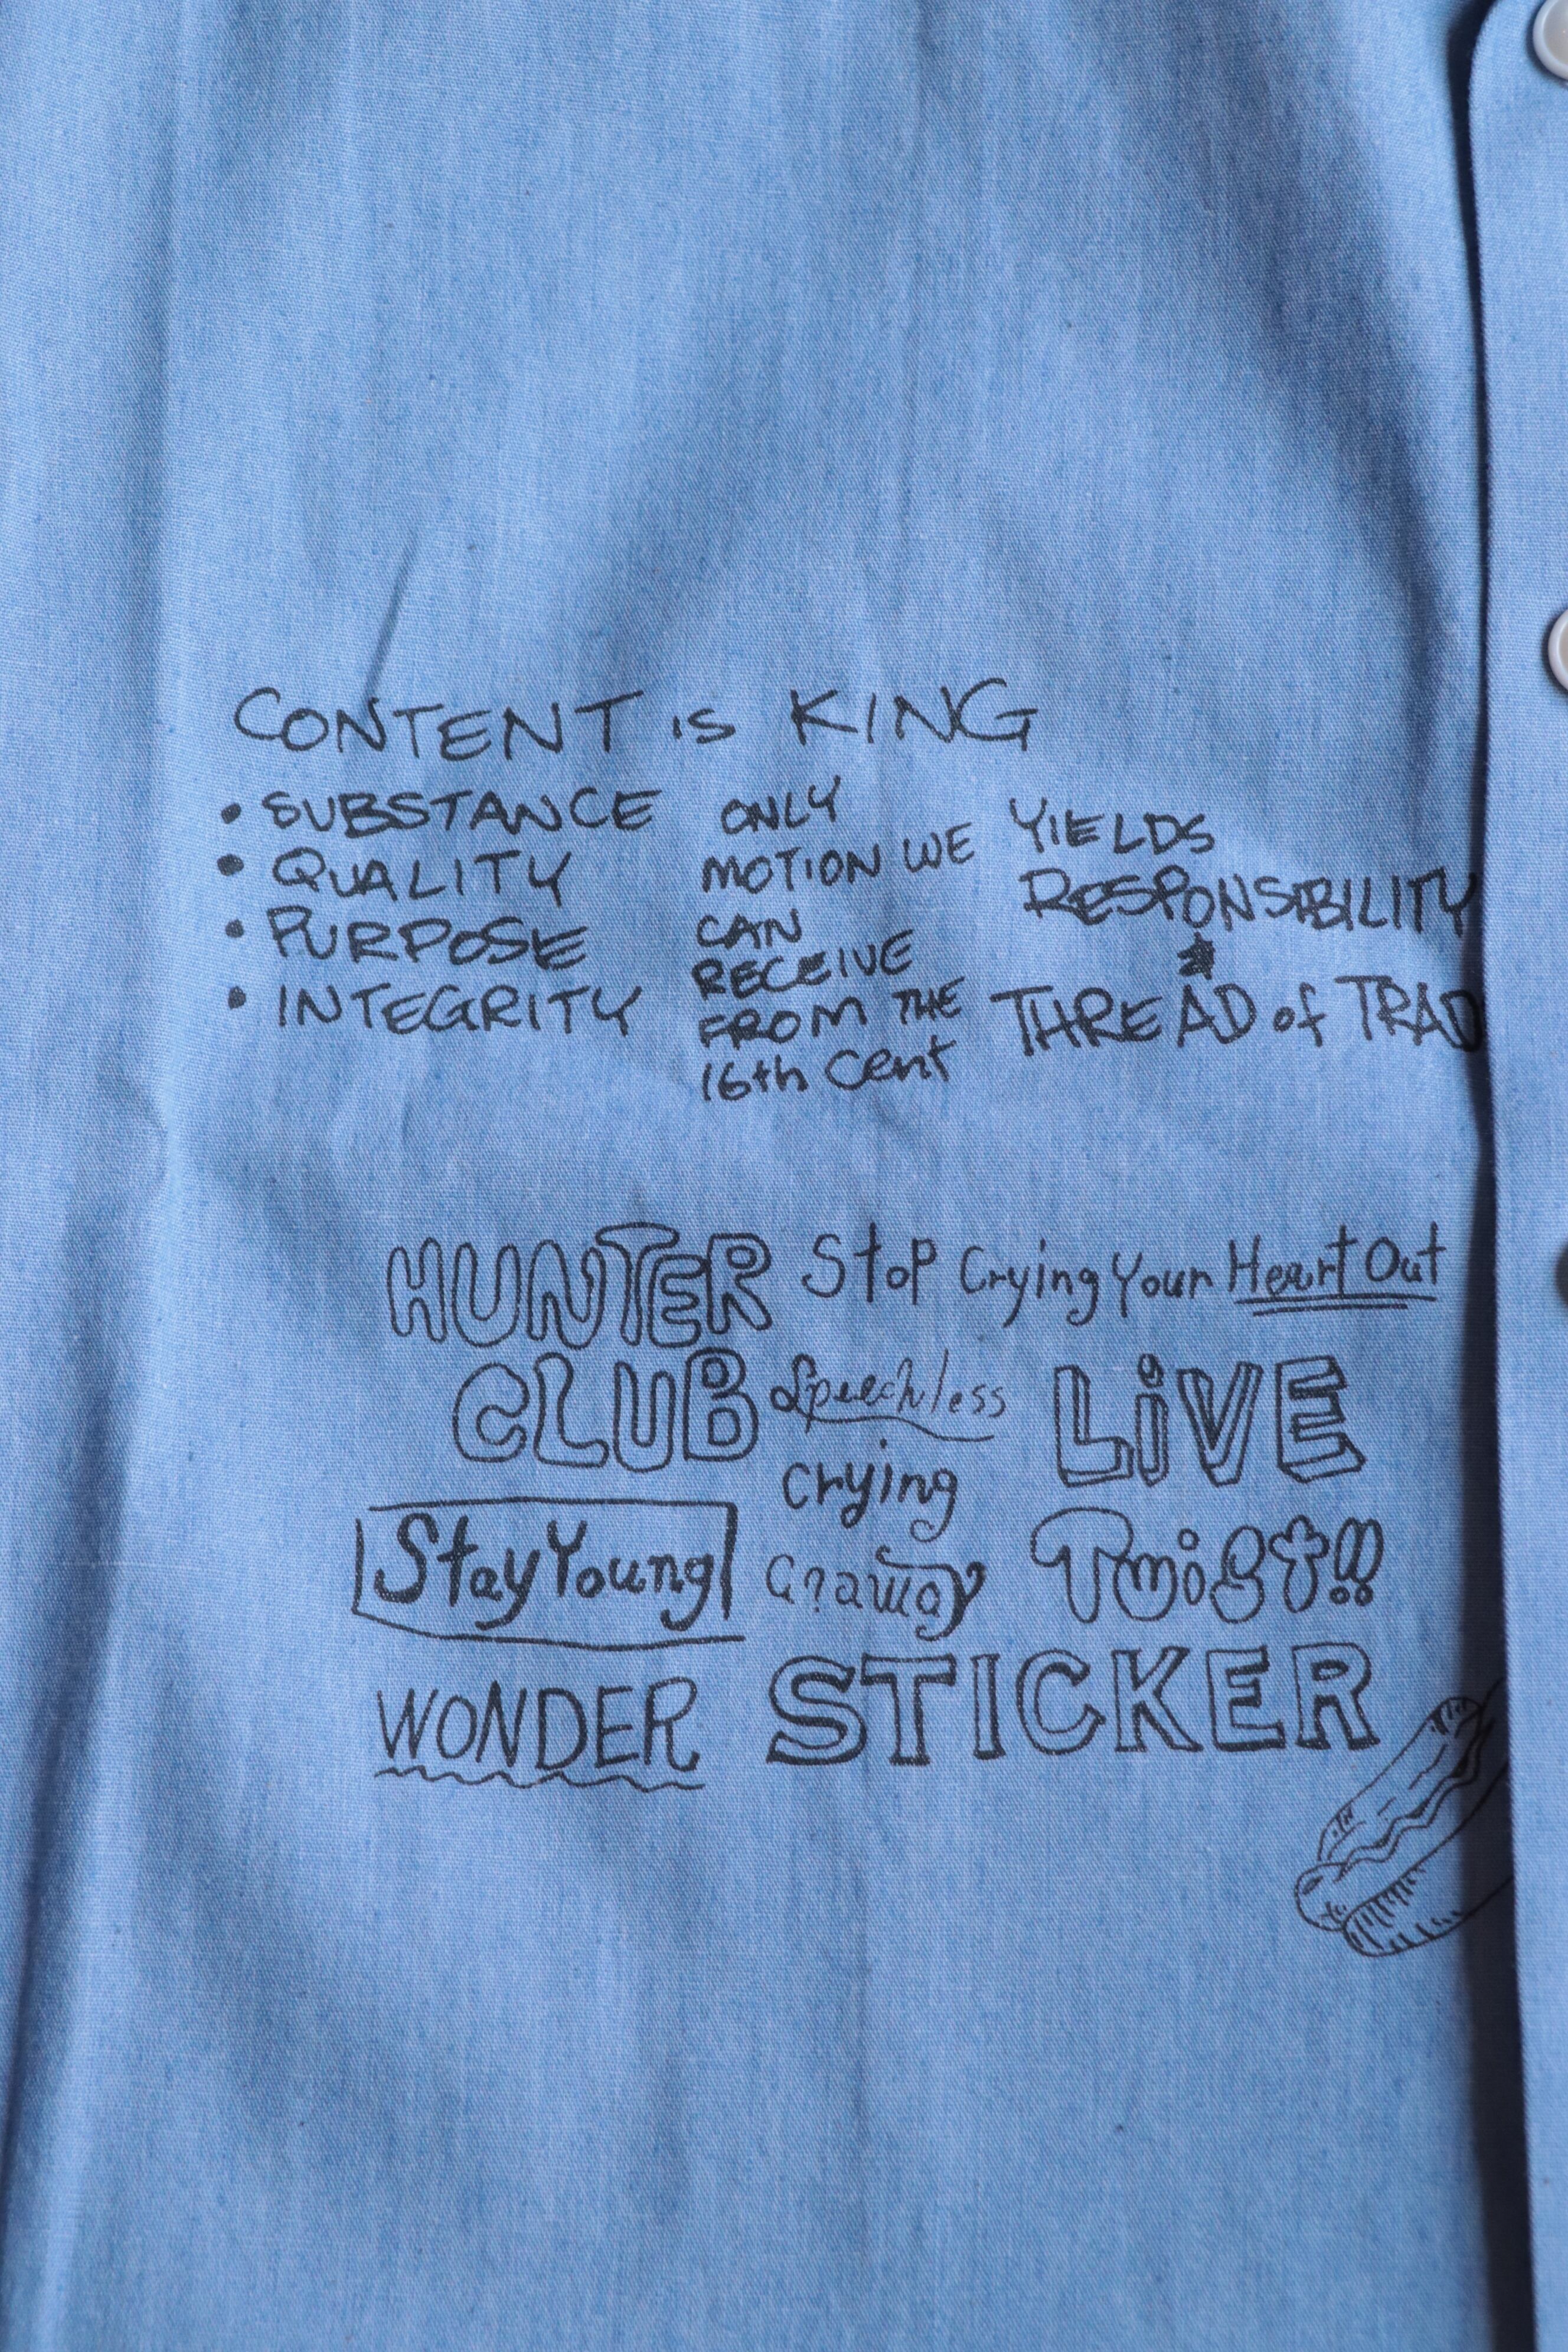 CONTENT is KING
• SUBSTANCE
• QUALITY
• PURPOSE
• INTEGRITY
ONLY
MOTION WE
CAN
RECEIVE
FROM THE
16th Cent
YIELDS
RESPONSIBILITY
THREAD of TRAD
HUNTER
CLUB
Stop Crying Your Heart Out
Speechless
LiVE
Crying
Stay Young
Twist!!
WONDER
STICKER